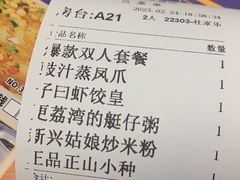 点菜单
台:A21
2023.02.24-18:58:34
2人 22303-杜家乐
品名称 数量
爆款双人套餐 1
豉汁蒸凤爪 1
子曰虾饺皇 1
更荔湾的艇仔粥 1
新兴姑娘炒米粉 1
正品正山小种 1
合计:
NO.